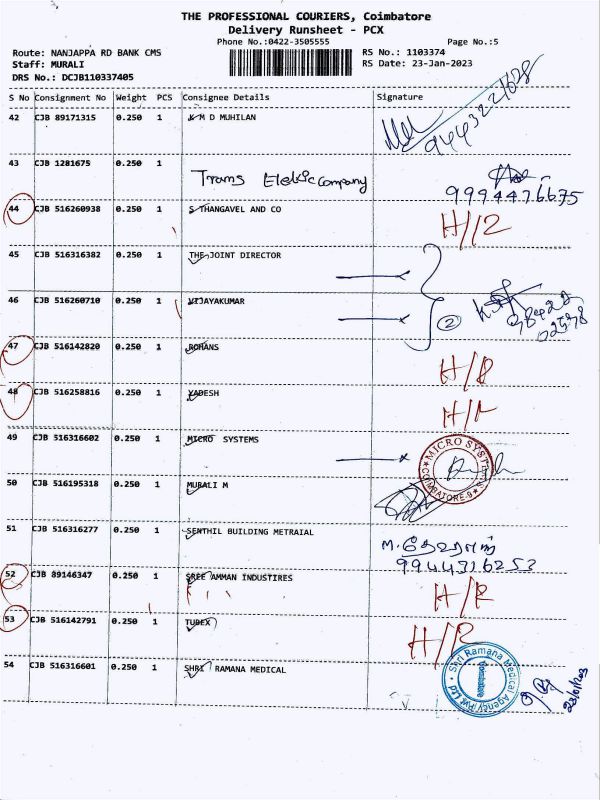 THE PROFESSIONAL COURIERS, Coimbatore
Delivery Runsheet - PCX
Phone No.:0422-3505555 Page No.:5
Route: NANJAPPA RD BANK CMS RS No.: 1103374
Staff: MURALI RS Date: 23-Jan-2023
DRS No.: DCJB110337405
S No Consignment No Weight PCS Consignee Details Signature
42 CJB 89171315 0.250 1 K M D MUHILAN
9443221628
43 CJB 1281675 0.250 1 Trams Elektric company
9994476675
44 CJB 516260938 0.250 1 S THANGAVEL AND CO
45 CJB 516316382 0.250 1 THE JOINT DIRECTOR
46 CJB 516260710 0.250 1 VIJAYAKUMAR
2
47 CJB 516142820 0.250 1 ROHANS
48 CJB 516258816 0.250 1 YADESH
49 CJB 516316602 0.250 1 MICRO SYSTEMS
MICRO SYSTEMS COIMBATORE-9
50 CJB 516195318 0.250 1 MURALI M
51 CJB 516316277 0.250 1 SENTHIL BUILDING METRAIAL
ம.தேவராஜ்
9944316253
52 CJB 89146347 0.250 1 SREE AMMAN INDUSTIRES
H/R
53 CJB 516142791 0.250 1 TUBEX
H/R
54 CJB 516316601 0.250 1 SHRI RAMANA MEDICAL
Shri Ramana Medical Agency Pvt Ltd Coimbatore